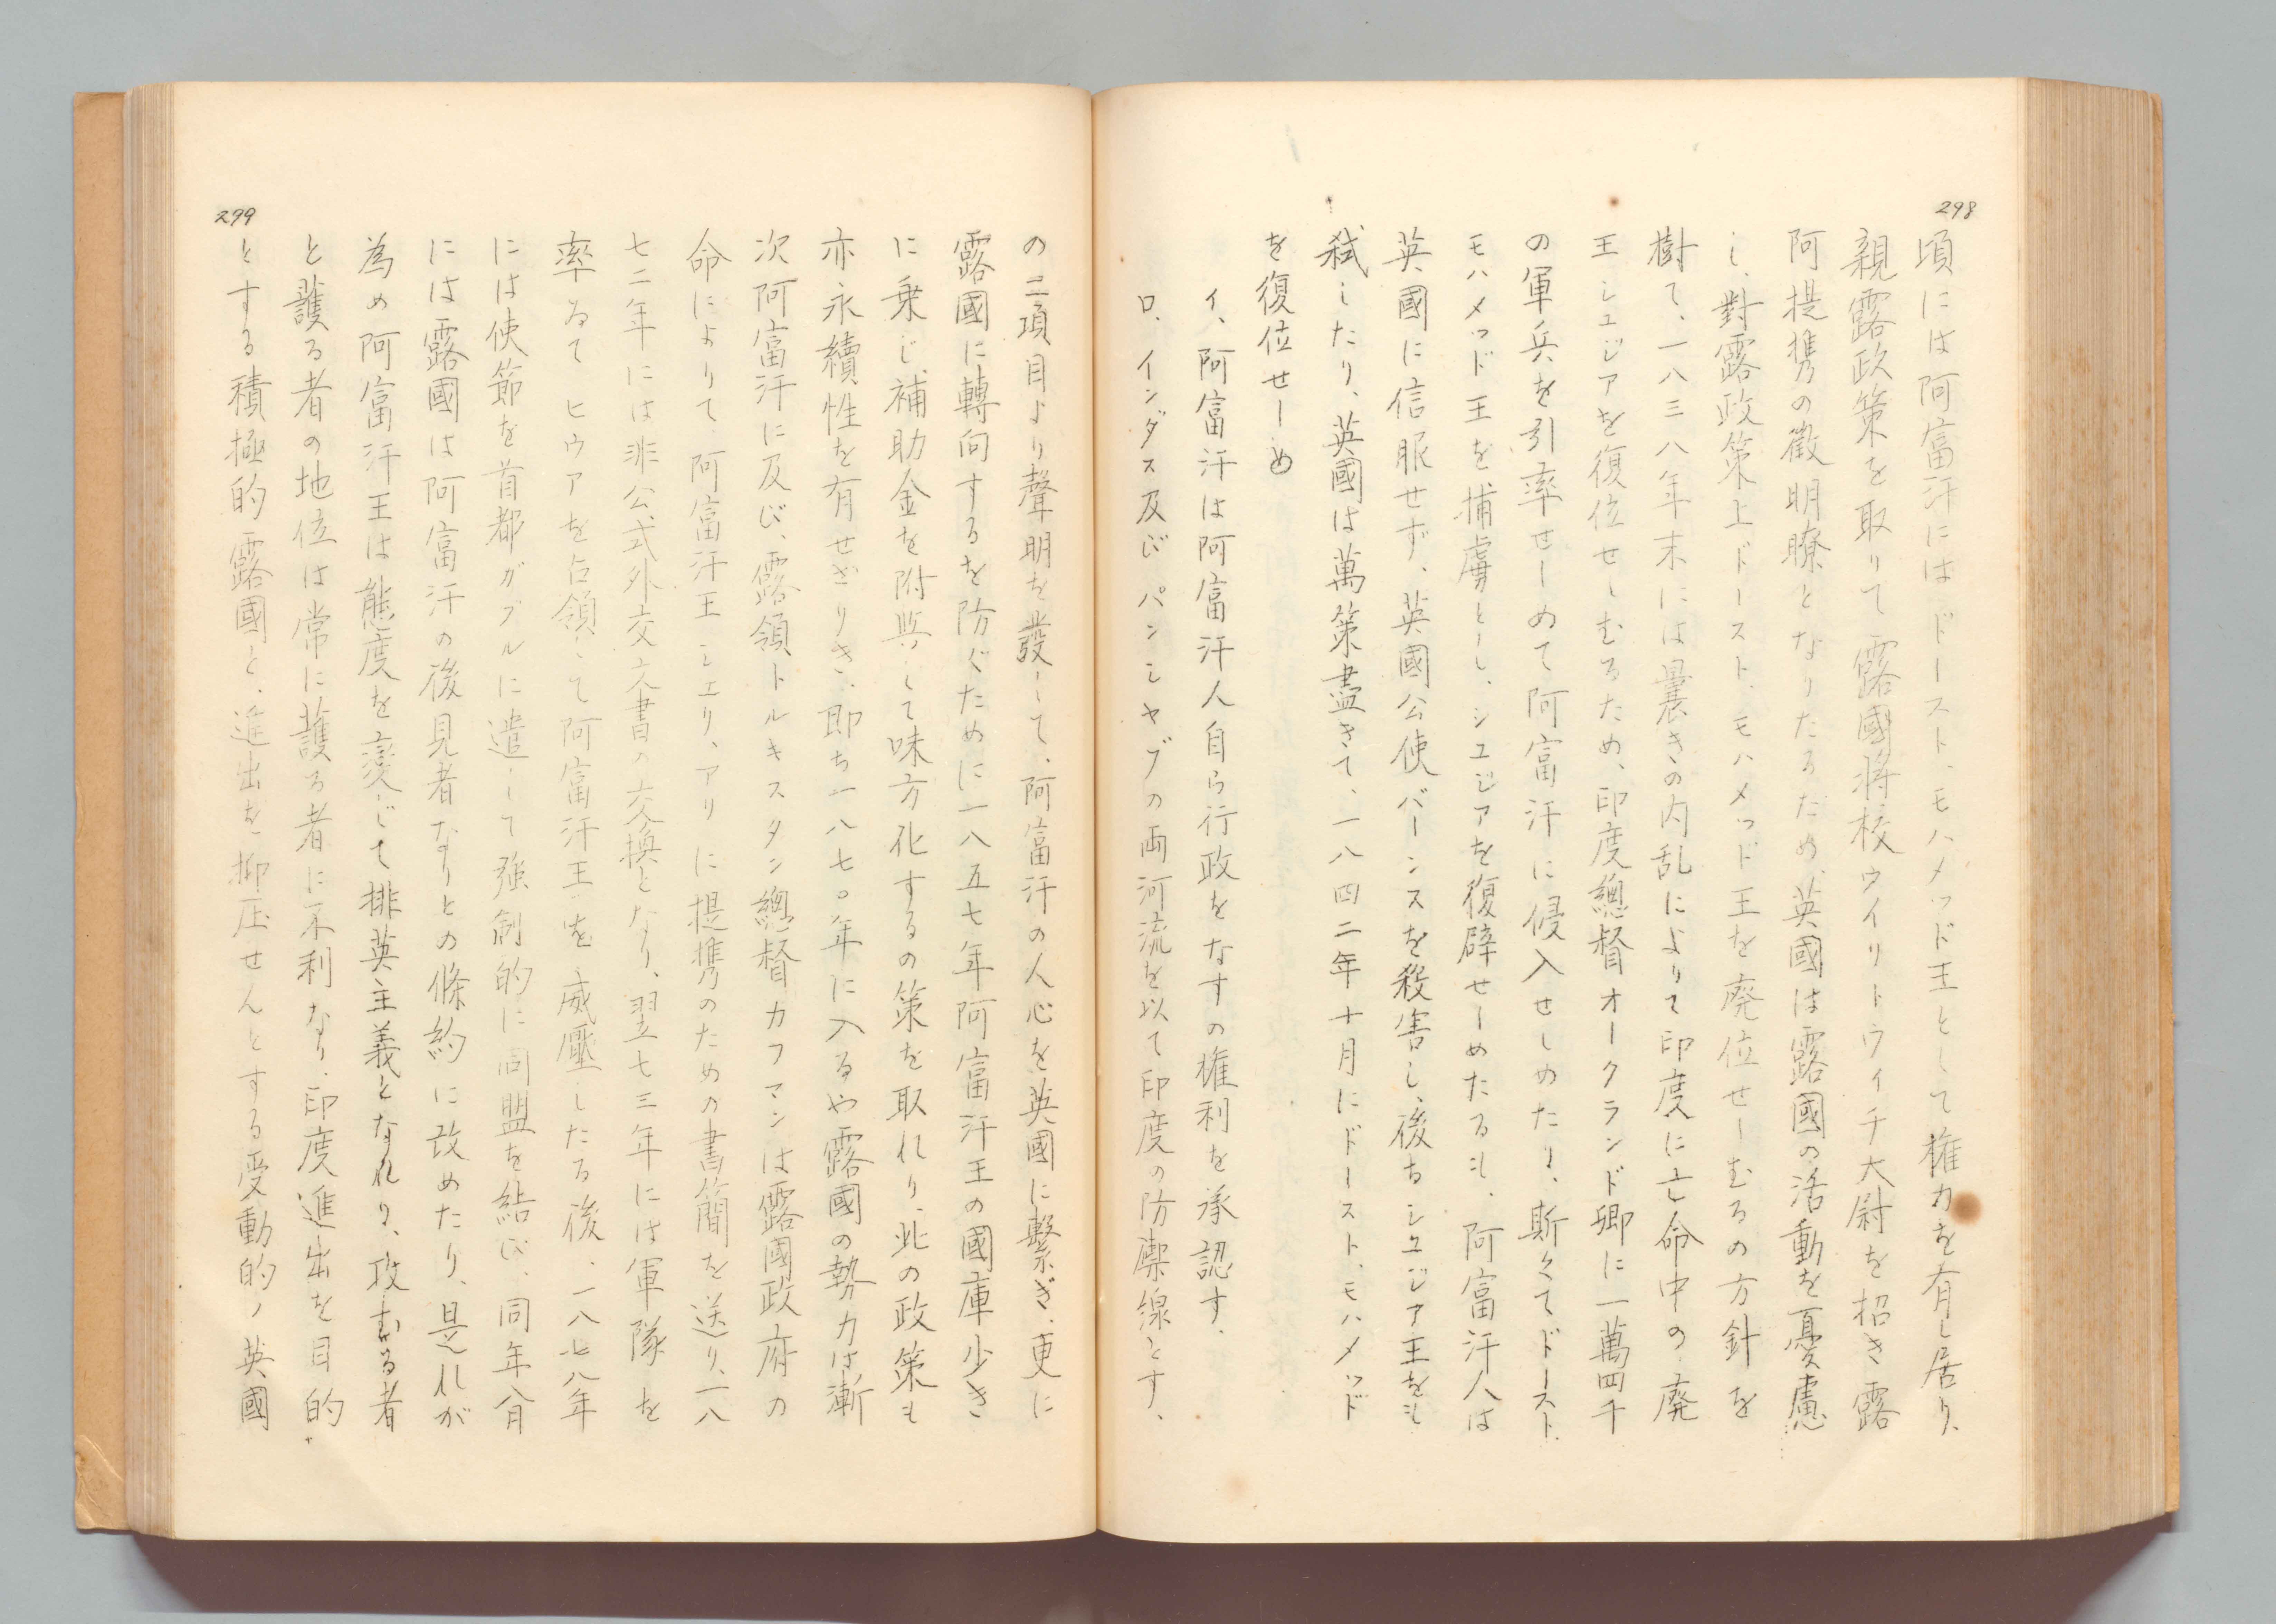 298
頃には阿富汗にはドースト、モハメッド王として権力を有し居り、
親露政策を取りて露國将校ウイリトウィチ大尉を招き露
阿提携の徴明瞭となりたるため、英國は露國の活動を憂慮
し、對露政策上ドースト、モハメッド王を廃位せしむるの方針を
樹て、一八三八年末には曩きの内乱によりて印度に亡命中の廃
王シュジアを復位せしむるため、印度總督オークランド卿に一萬四千
の軍兵を引率せしめて阿富汗に侵入せしめたり、斯くてドースト
モハメッド王を捕虜とし、シュジアを復辟せしめたるも、阿富汗人は
英國に信服せず、英國公使バーンスを殺害し、後ちシュジア王をも
弑したり、英國は萬策盡きて、一八四二年十月にドースト、モハメッド
を復位せしめ
イ、阿富汗は阿富汗人自ら行政をなすの権利を承認す、
ロ、インダス及びパンシャブの両河流を以て印度の防禦線とす、
の二項目より聲明を發して、阿富汗の人心を英國に繋ぎ、更に
露國に轉向するを防ぐために一八五七年阿富汗王の國庫少き
に乗じ、補助金を附與して味方化するの策を取れり、此の政策も
亦永續性を有せざりき、即ち一八七〇年に入るや露國の勢力は漸
次阿富汗に及び、露領トルキスタン總督カフマンは露國政府の
命によりて阿富汗王シェリ、アリに提携のための書簡を送り、一八
七二年には非公式外交文書の交換となり、翌七三年には軍隊を
率ゐてヒウアを占領して阿富汗王を威壓したる後、一八七八年
には使節を首都ガブルに遣して強制的に同盟を結び、同年八月
には露國は阿富汗の後見者なりとの條約に改めたり、是れが
為め阿富汗王は態度を変じて排英主義となれり、攻むる者
と護る者の地位は常に護る者に不利なり、印度進出を目的
とする積極的露國と、進出を抑圧せんとする受動的ノ英國
299